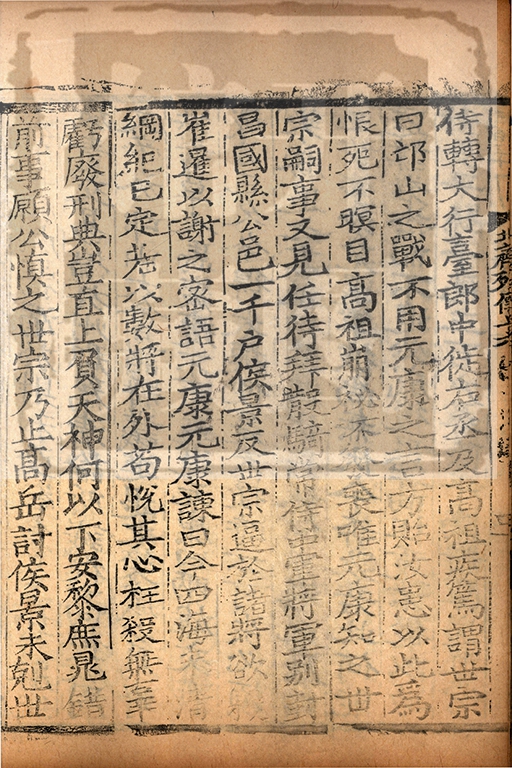 待轉大行臺郎中徙右丞及高祖疾篤謂世宗
曰邙山之戰不用元康之言方貽汝患以此為
恨死不瞑目高祖崩祕不發喪唯元康知之世
宗嗣事又見任待拜散騎常侍中軍將軍別封
昌國縣公邑一千户侯景反世宗逼於諸將欲殺
崔暹以謝之密語元康元康諫曰今四海未清
綱紀已定若以數將在外苟悅其心枉殺無辜
虧廢刑典豈直上負天神何以下安黎庶晁錯
前事願公慎之世宗乃止高岳討侯景未剋世
北齊列傳十六